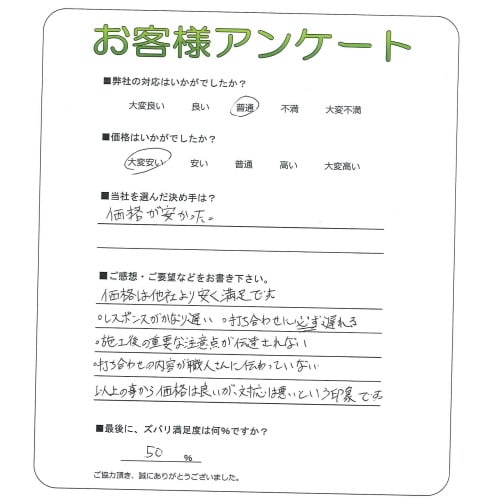 お客様アンケート
■弊社の対応はいかがでしたか？
大変良い 良い 普通 不満 大変不満
■価格はいかがでしたか？
大変安い 安い 普通 高い 大変高い
■当社を選んだ決め手は？
価格が安かった。
■ご感想・ご要望などをお書き下さい。
価格は他社より安く満足です
○レスポンスがかなり遅い ○打ち合わせに必ず遅れる
○施工後の重要な注意点が伝達されない
○打ち合わせの内容が職人さんに伝わっていない
以上の事から価格は良いが、対応は悪いという印象です
■最後に、ズバリ満足度は何%ですか？
50 %
ご協力頂き、誠にありがとうございました。